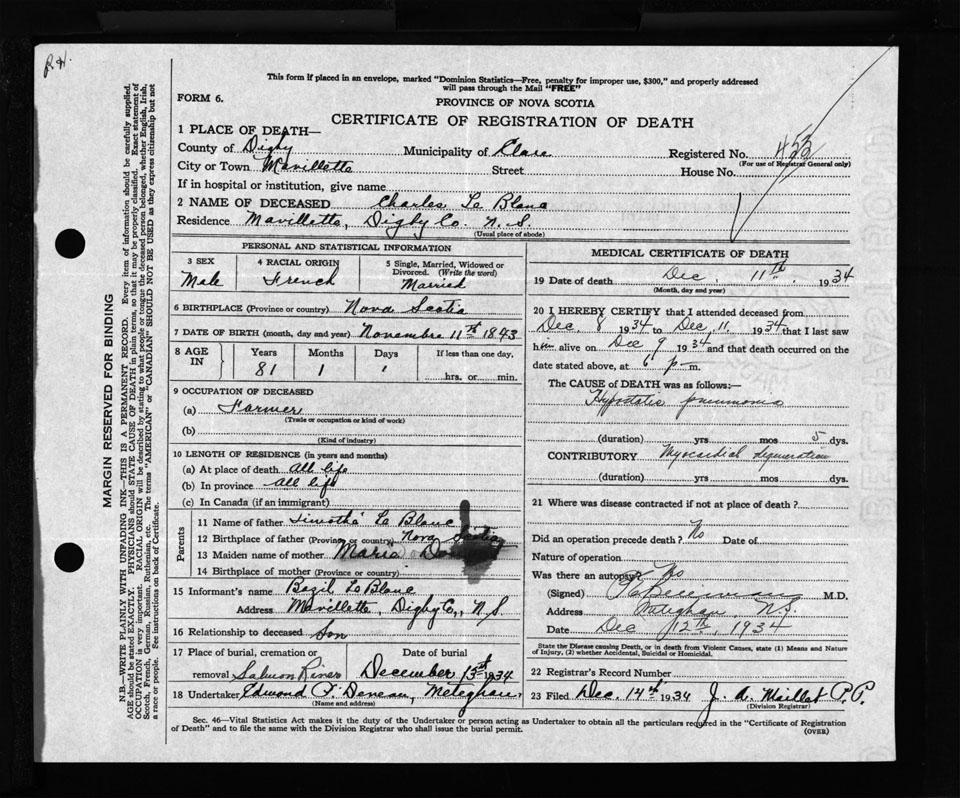 R.H.
This form if placed in an envelope, marked "Dominion Statistics—Free, penalty for improper use, $300," and properly addressed
will pass through the Mail "FREE"
FORM 6.
PROVINCE OF NOVA SCOTIA
CERTIFICATE OF REGISTRATION OF DEATH
1 PLACE OF DEATH—
County of Digby Municipality of Clare Registered No.
(For use of Registrar General only)
City or Town Mavillette Street House No.
If in hospital or institution, give name
2 NAME OF DECEASED Charles Le Blanc
Residence Mavillette, Digby Co. N.S.
(Usual place of abode)
PERSONAL AND STATISTICAL INFORMATION
3 SEX 4 RACIAL ORIGIN 5 Single, Married, Widowed or
Divorced. (Write the word)
Male French Married
6 BIRTHPLACE (Province or country) Nova Scotia
7 DATE OF BIRTH (month, day and year) Novembre 11th 1893
8 AGE IN Years Months Days If less than one day,
81 1 hrs. or min.
9 OCCUPATION OF DECEASED
(a) Farmer
(Trade or occupation or kind of work)
(b)
(Kind of industry)
10 LENGTH OF RESIDENCE (in years and months)
(a) At place of death all life
(b) In province all life
(c) In Canada (if an immigrant)
Parents
11 Name of father Timothé Le Blanc
12 Birthplace of father (Province or country) Nova Scotia
13 Maiden name of mother Marie
14 Birthplace of mother (Province or country)
15 Informant's name Bazil Le Blanc
Address Mavillette, Digby Co., N.S.
16 Relationship to deceased Son
17 Place of burial, cremation or Date of burial
removal Salmon River December 13th 1934
18 Undertaker Edmond F. Meteghan,
(Name and address)
MEDICAL CERTIFICATE OF DEATH
19 Date of death Dec. 11th, 1934
(Month, day and year)
20 I HEREBY CERTIFY that I attended deceased from
Dec 8 1934 to Dec, 11 1934 that I last saw
him alive on Dec 9 1934 and that death occurred on the
date stated above, at 6 p m.
The CAUSE of DEATH was as follows:—
Hypostatic pneumonia
(duration) yrs mos 5 dys.
CONTRIBUTORY Myocardial degeneration
(duration) yrs mos dys.
21 Where was disease contracted if not at place of death?
Did an operation precede death? No Date of
Nature of operation
Was there an autopsy? No
(Signed) M.D.
Address Meteghan N.S.
Date Dec 12th, 1934
State the Disease causing Death, or in death from Violent Causes, state (1) Means and Nature
of Injury, (2) whether Accidental, Suicidal or Homicidal.
22 Registrar's Record Number
23 Filed Dec. 14th 1934 J. A. Maillet P.P.
(Division Registrar)
Sec. 46—Vital Statistics Act makes it the duty of the Undertaker or person acting as Undertaker to obtain all the particulars required in the "Certificate of Registration
of Death" and to file the same with the Division Registrar who shall issue the burial permit.
(OVER)
MARGIN RESERVED FOR BINDING
N.B.—WRITE PLAINLY WITH UNFADING INK—THIS IS A PERMANENT RECORD. Every item of information should be carefully supplied.
AGE should be stated EXACTLY. PHYSICIANS should STATE CAUSE OF DEATH in plain terms, so that it may be properly classified. Exact statement of
OCCUPATION is very important. RACIAL ORIGIN will be described by stating to what people or tongue the deceased person belonged, whether English, Irish,
Scotch, French, German, Russian, Ruthenian, etc. The terms "AMERICAN" or "CANADIAN" SHOULD NOT BE USED as they express citizenship but not
a race or people. See instructions on back of Certificate.